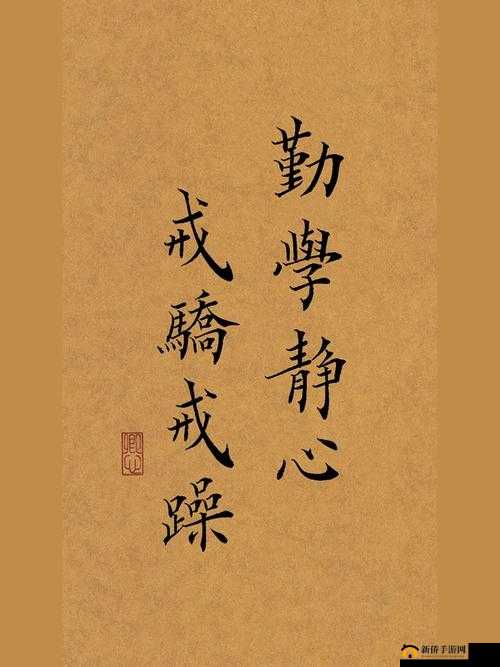 勤學静心
戒驕戒躁
新侨手游网